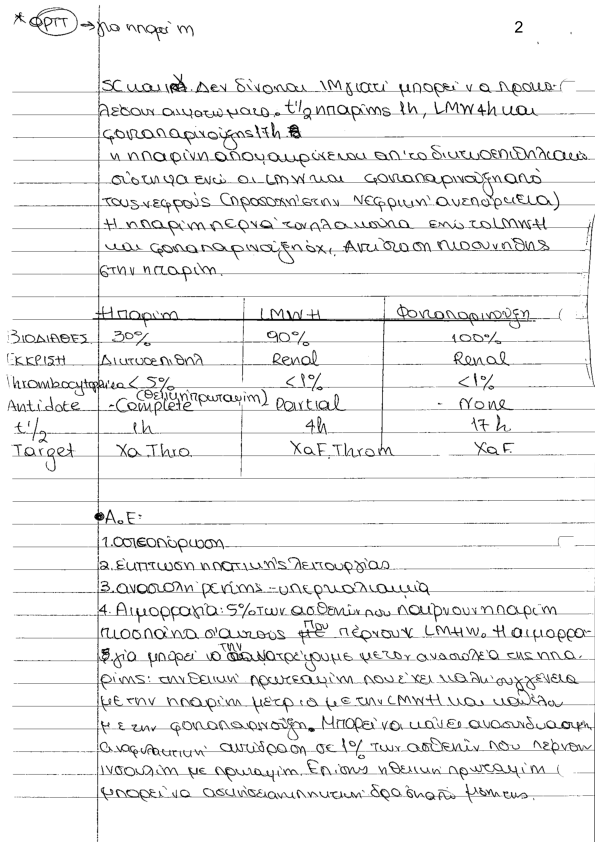 * ΦΡΤΤ → για ηπαρίνη
2
SC και IV. Δεν δίνονται IM γιατί μπορεί να προκα-
λέσουν αιματώματα. t½ ηπαρίνης 1h, LMW 4h και
φονταπαρινούξης 17h
η ηπαρίνη απομακρύνεται απ'το δικτυοενδοθηλιακό
σύστημα ενώ οι LMW και φονταπαρινούξη από
τους νεφρούς (προσοχή στην νεφρική ανεπάρκεια)
Η ηπαρίνη περνά τον πλακούντα ενώ το LMWH
και φονταπαρινούξη όχι. Αντίσταση πιο συνήθης
στην ηπαρίνη.
Ηπαρίνη LMWH Φονταπαρινούξη
ΒΙΟΔΙΑΘΕΣ 30% 90% 100%
ΕΚΚΡΙΣΗ Δικτυοεπιθηλ Renal Renal
Thrombocytopenia <5% <1% <1%
(Θειική πρωταμίνη)
Antidote -Complete Partial - None
t½ 1h 4h 17h
Target Xa, Thro. XaF, Throm XaF.
•Α.Ε:
1. οστεοπόρωση
2. έκπτωση ηπατικής λειτουργίας
3. αναστολή ρενίνης - υπερκαλιαιμία
4. Αιμορραγία: 5% των ασθενών που παίρνουν ηπαρίνη
πιο σπάνια σ'αυτούς που πέρνουν LMHW. Η αιμορρα-
γία μπορεί να την ανατρέψουμε με τον αναστολέα της ηπα-
ρίνης: την θειική πρωταμίνη που έχει καλή συγγένεια
με την ηπαρίνη μέτρια με την LMWH και καθόλου
με την φονταπαρινούξη. Μπορεί να κάνει
αναφυλακτική αντίδραση σε 1% των ασθενών που πέρνουν
ινσουλίνη με πρωταμίνη. Επίσης η θειική πρωταμίνη
μπορεί να ασκήσει αντιπηκτική δράση από μόνη της.